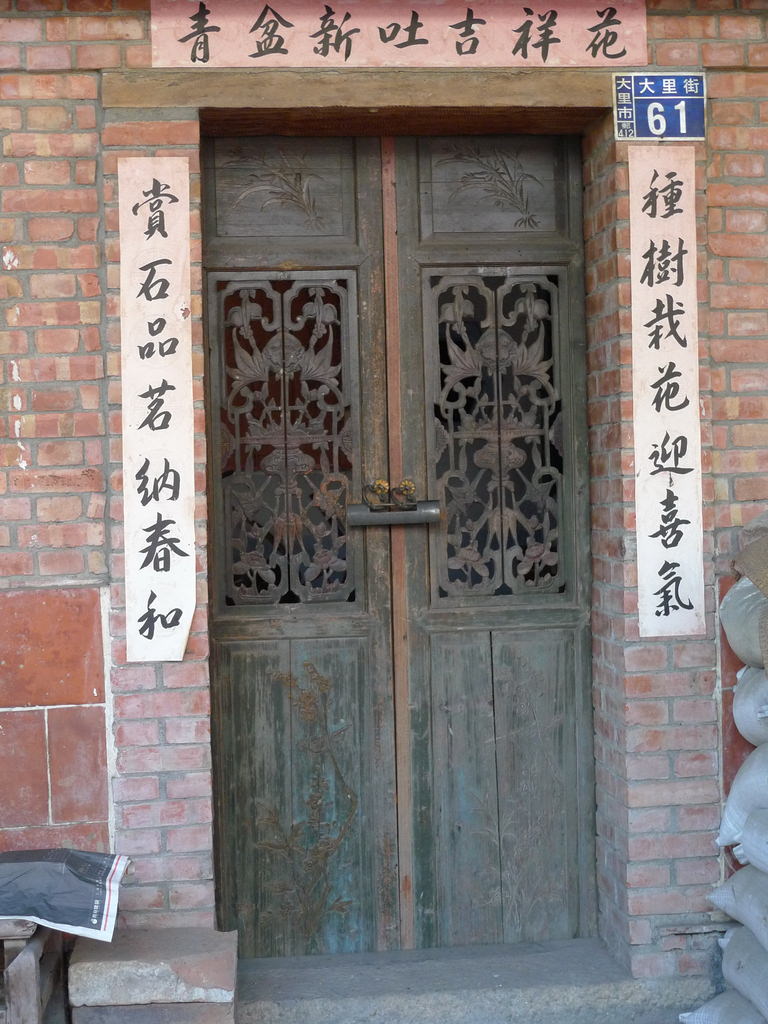 青盆新吐吉祥花
大里街
大里市
郵412
61
種樹栽花迎喜氣
賞石品茗納春和